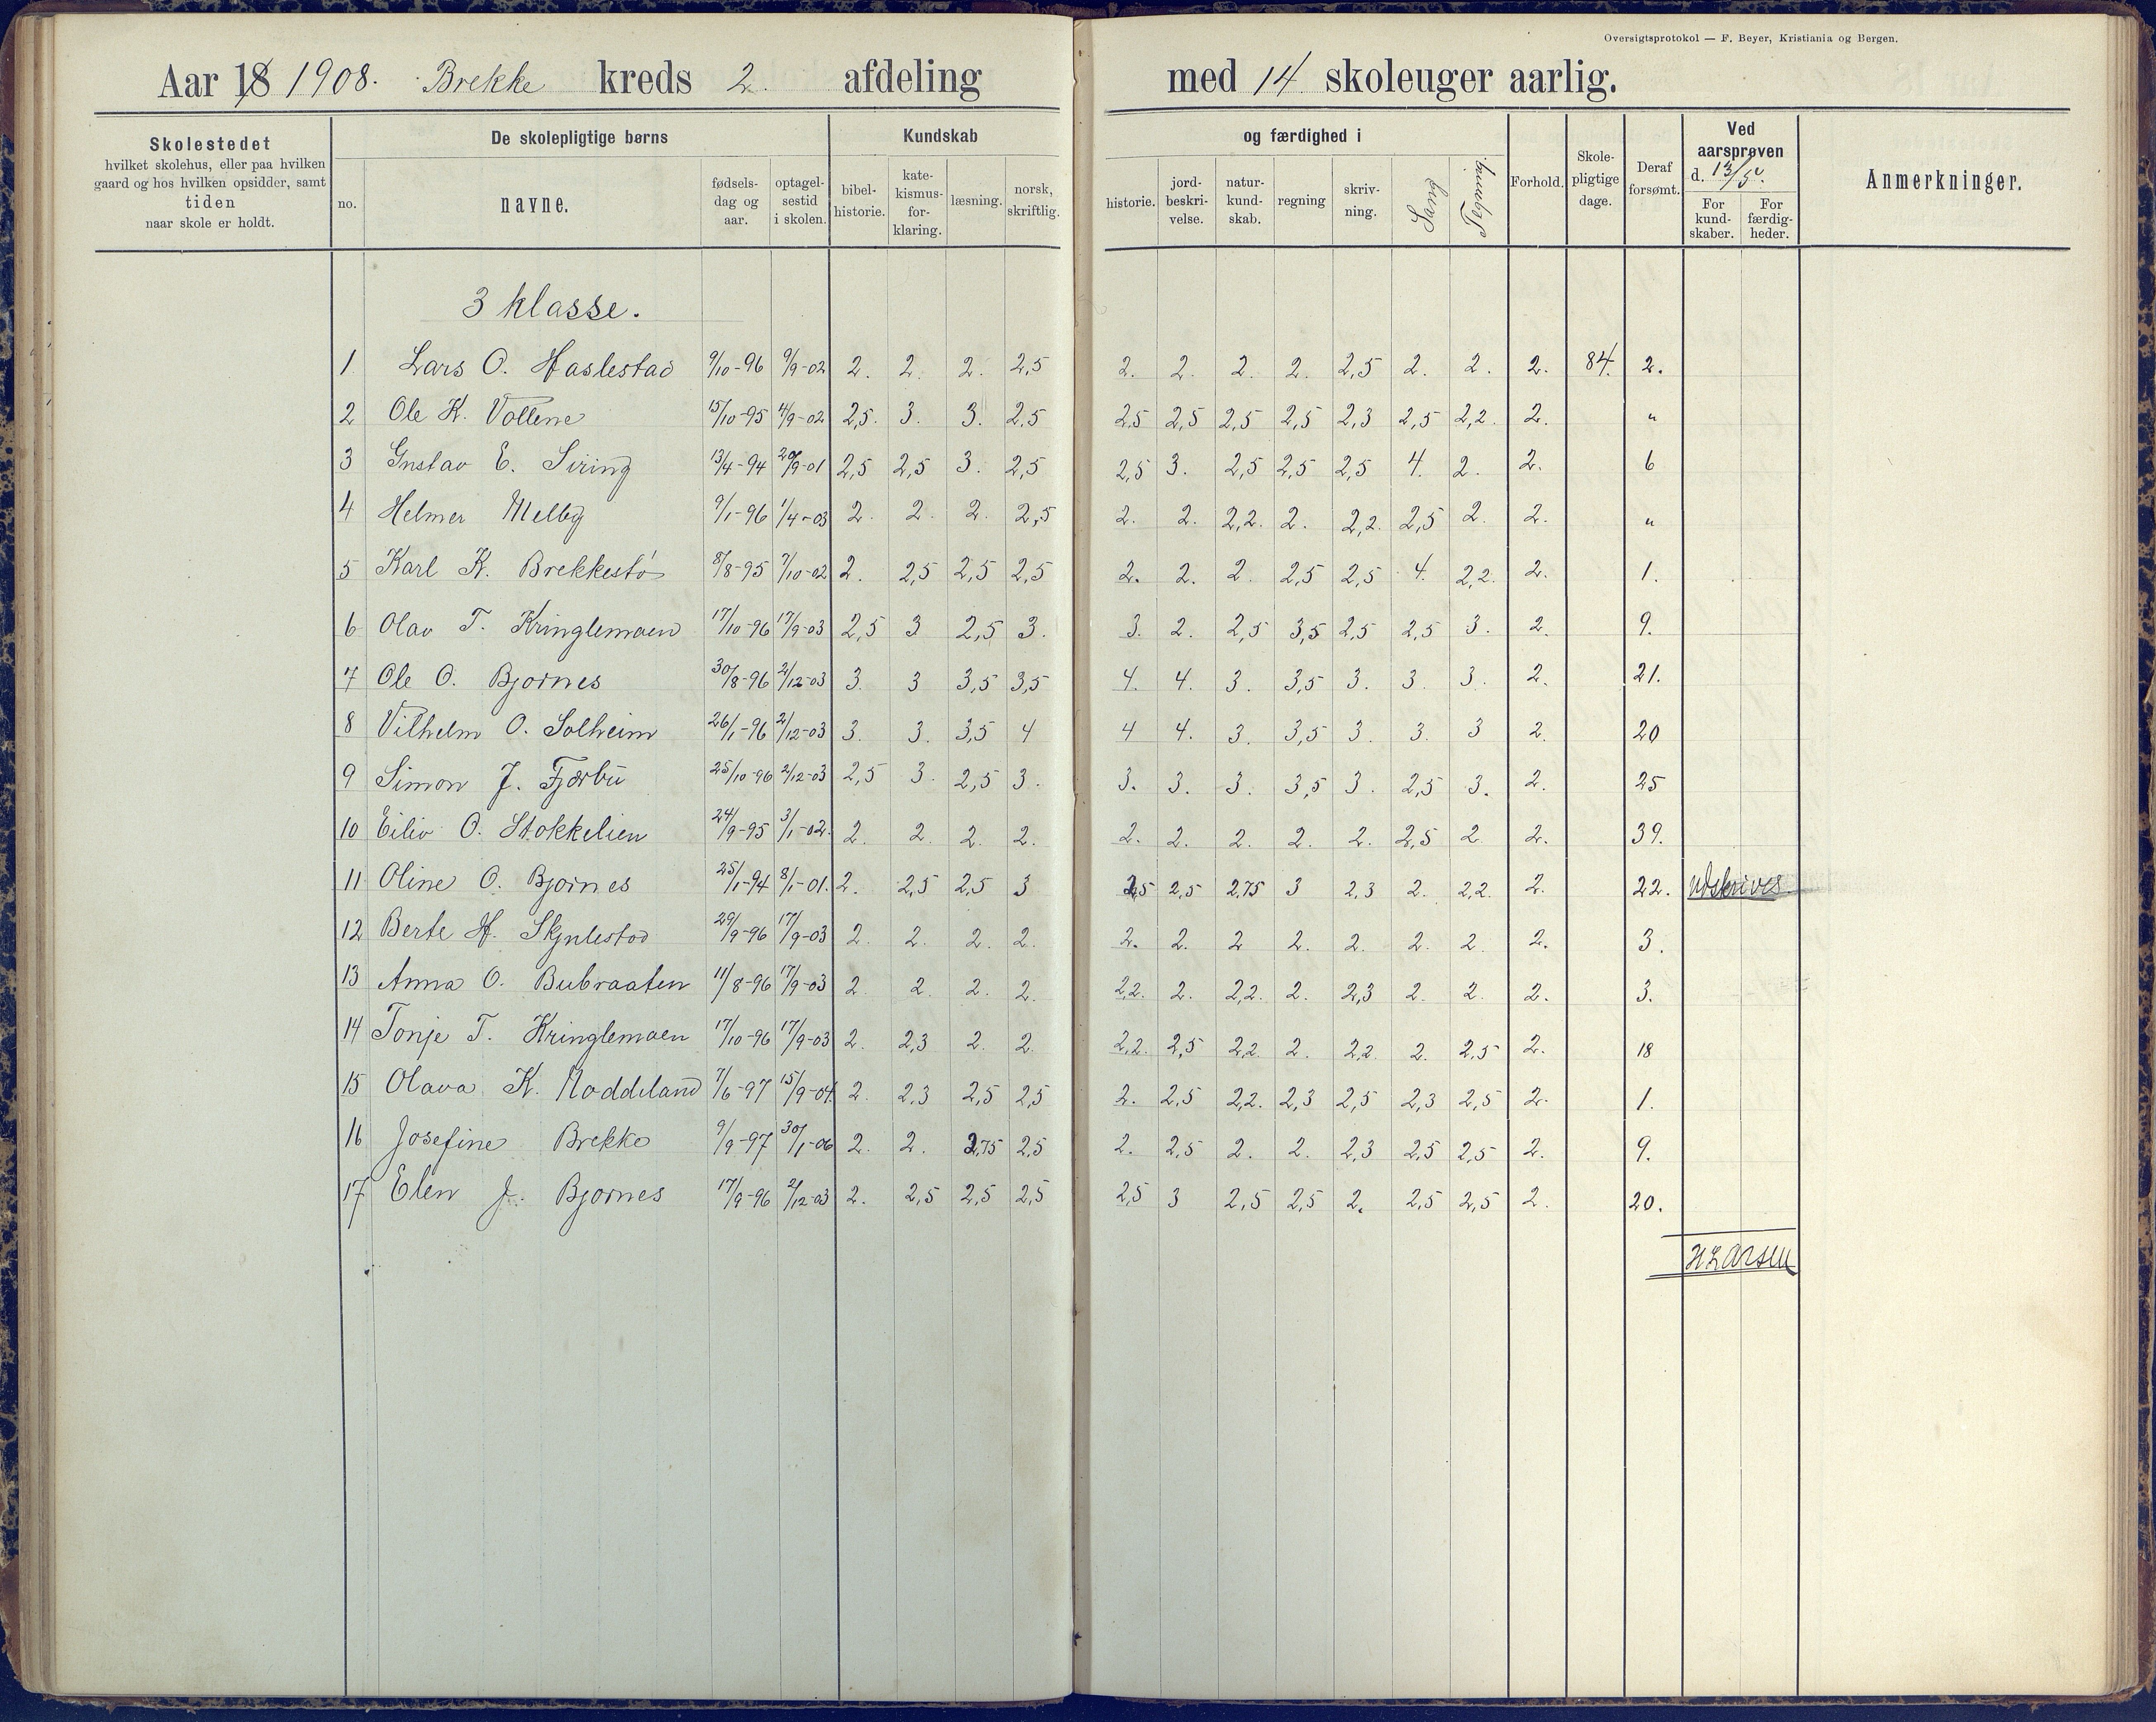 Oversigtsprotokol — F. Beyer, Kristiania og Bergen.
Aar 18 1908. Brekke kreds 2. afdeling med 14 skoleuger aarlig.
Skolestedet
hvilket skolehus, eller paa hvilken
gaard og hos hvilken opsidder, samt
tiden
naar skole er holdt.
De skolepligtige børns
no.
navne.
fødsels-
dag og
aar.
optagel-
sestid
i skolen.
Kundskab
bibel-
historie.
kate-
kismus-
for-
klaring.
læsning.
norsk,
skriftlig.
og færdighed i
historie.
jord-
beskri-
velse.
natur-
kund-
skab.
regning
skriv-
ning.
Sang
Tegning.
Forhold.
Skole-
pligtige
dage.
Deraf
forsømt.
Ved
aarsprøven
d. 13/5
For
kund-
skaber.
For
færdig-
heder.
Anmerkninger.
3 klasse.
1 Lars O. Haslestad 9/10-96 9/9-02 2. 2. 2. 2,5 2. 2. 2. 2. 2,5 2. 2. 2. 84. 2.
2 Ole K. Vollene 15/10-95 4/9-02 2,5. 3. 3. 2,5 2,5 2,5 2,5 2,5 2,3 2,5 2,2. 2. "
3 Gustav E. Siring 13/4-94 20/9-01 2,5 2,5 3. 2,5 2,5 3. 2,5 2,5 2,5 4. 2. 2. 6
4 Helmer Melby 9/1-96 1/4-03 2. 2. 2. 2,5 2. 2. 2,2. 2. 2,2. 2,5 2. 2. "
5 Karl K. Brekkestø 8/8-95 7/10-02 2. 2,5 2,5 2,5 2. 2. 2. 2,5 2,5 4. 2,2. 2. 1.
6 Olav T. Kringlemoen 17/10-96 17/9-03 2,5 3 2,5 3. 3. 2. 2,5 3,5 2,5 2,5 3. 2. 9.
7 Ole O. Bjornes 30/8-96 2/12-03 3. 3 3,5 3,5 4. 4. 3. 3,5 3. 3. 3. 2. 21.
8 Vilhelm O. Solheim 26/1-96 2/12-03 3. 3. 3,5 4 4 4. 3. 3,5 3. 3. 3 2. 20
9 Simon J. Fjærbu 25/10-96 2/12-03 2,5 3. 2,5 3. 3. 3. 3. 3,5 3. 2,5 3. 2. 25
10 Eiliv O. Stokkelien 24/9-95 3/1-02. 2. 2. 2. 2. 2. 2. 2. 2. 2. 2,5 2 2. 39.
11 Oline O. Bjornes 25/1-94 8/1-01. 2. 2,5 2,5 3 2,5 2,5 2,75 3 2,3 2. 2,2. 2. 22. Udskrives
12 Berte H. 29/9-96 17/9-03 2. 2. 2. 2. 2. 2. 2 2. 2. 2. 2. 2. 3.
13 Anna O. Bubraaten 11/8-96 17/9-03 2. 2. 2. 2. 2,2. 2. 2,2. 2. 2,3 2. 2. 2. 3.
14 Tonje T. Kringlemoen 17/10-96 17/9-03 2. 2,3 2. 2. 2,2. 2,5 2,2. 2. 2,2. 2. 2,5 2. 18
15 Olava K. Noddeland 7/6-97 15/9-04. 2. 2,3 2,5 2,5 2. 2,5 2,2. 2,3 2,5 2,3 2,5 2. 1.
16 Josefine Brekke 9/9-97 30/1-06 2. 2. 2,75 2,5 2. 2,5 2. 2. 2,3 2,5 2,5 2. 9.
17 Elen J. Bjornes 17/9-96 2/12-03 2. 2,5 2,5 2,5 2,5 3 2,5 2,5 2. 2,5 2,5 2. 20.
H Larsen